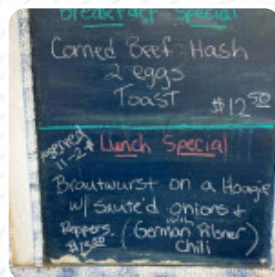 Breakfast Special
Corned Beef Hash
2 eggs
Toast $12.50
served 11-2
Lunch Special
Bratwurst on a Hoagie
w/ Sauté'd onions +
Peppers. with (German Pilsner)
$13.50 Chili